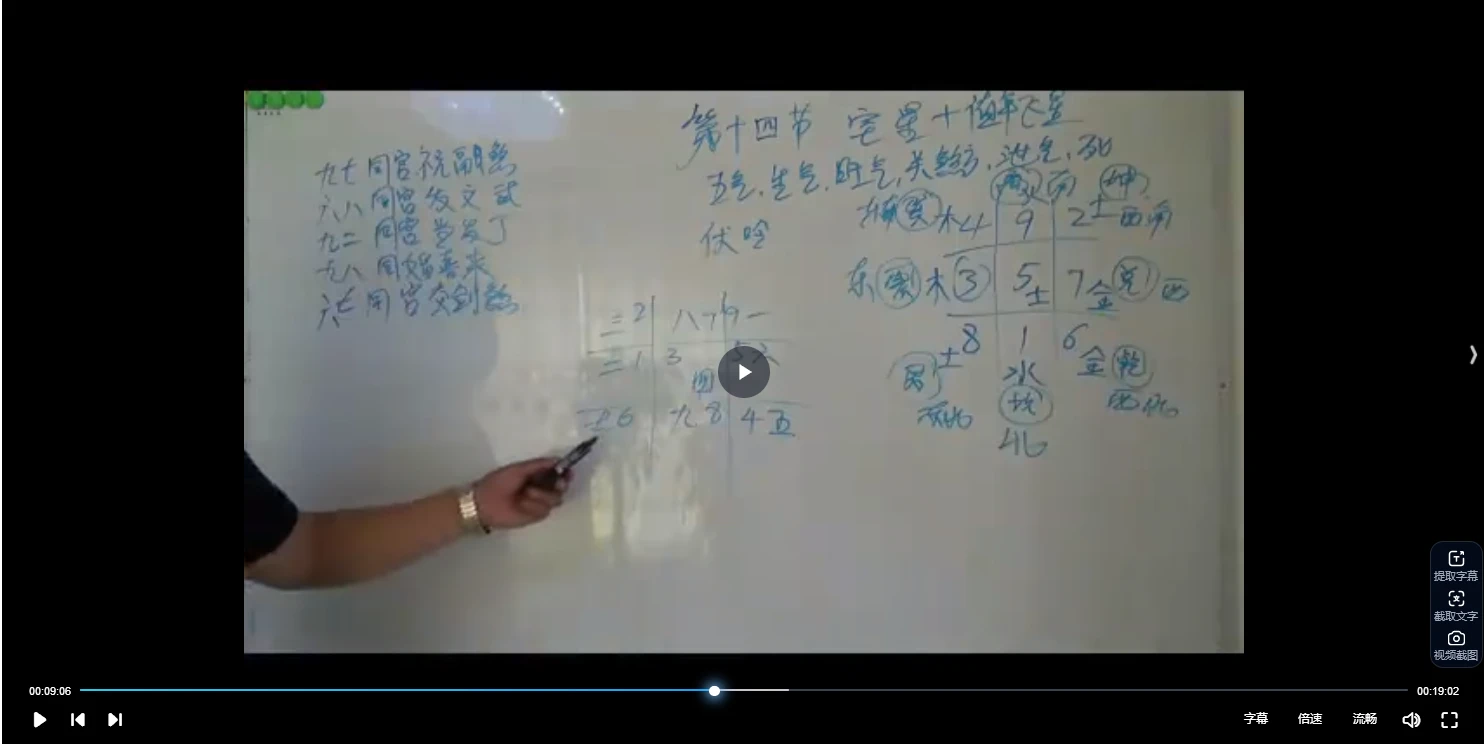 第十四节 宅星+值年飞星
五气.生气.旺气.关煞方.泄气.死
伏吟
九七同宫祝融
六八同宫发文
九二同宫
九八同 喜来
六七同宫交剑煞
二 2 八 7 9 一
三 1 3 5 六
四
七 6 九 8 4 五
南 坤
巽 木 4 9 2 土 西南
东 震 木 3 5 土 7 金 兑 西
土 8 1 6 金 乾
艮 水 西北
东北 坎
北
提取字幕
截取文字
视频截图
00:09:06
00:19:02
字幕
倍速
流畅